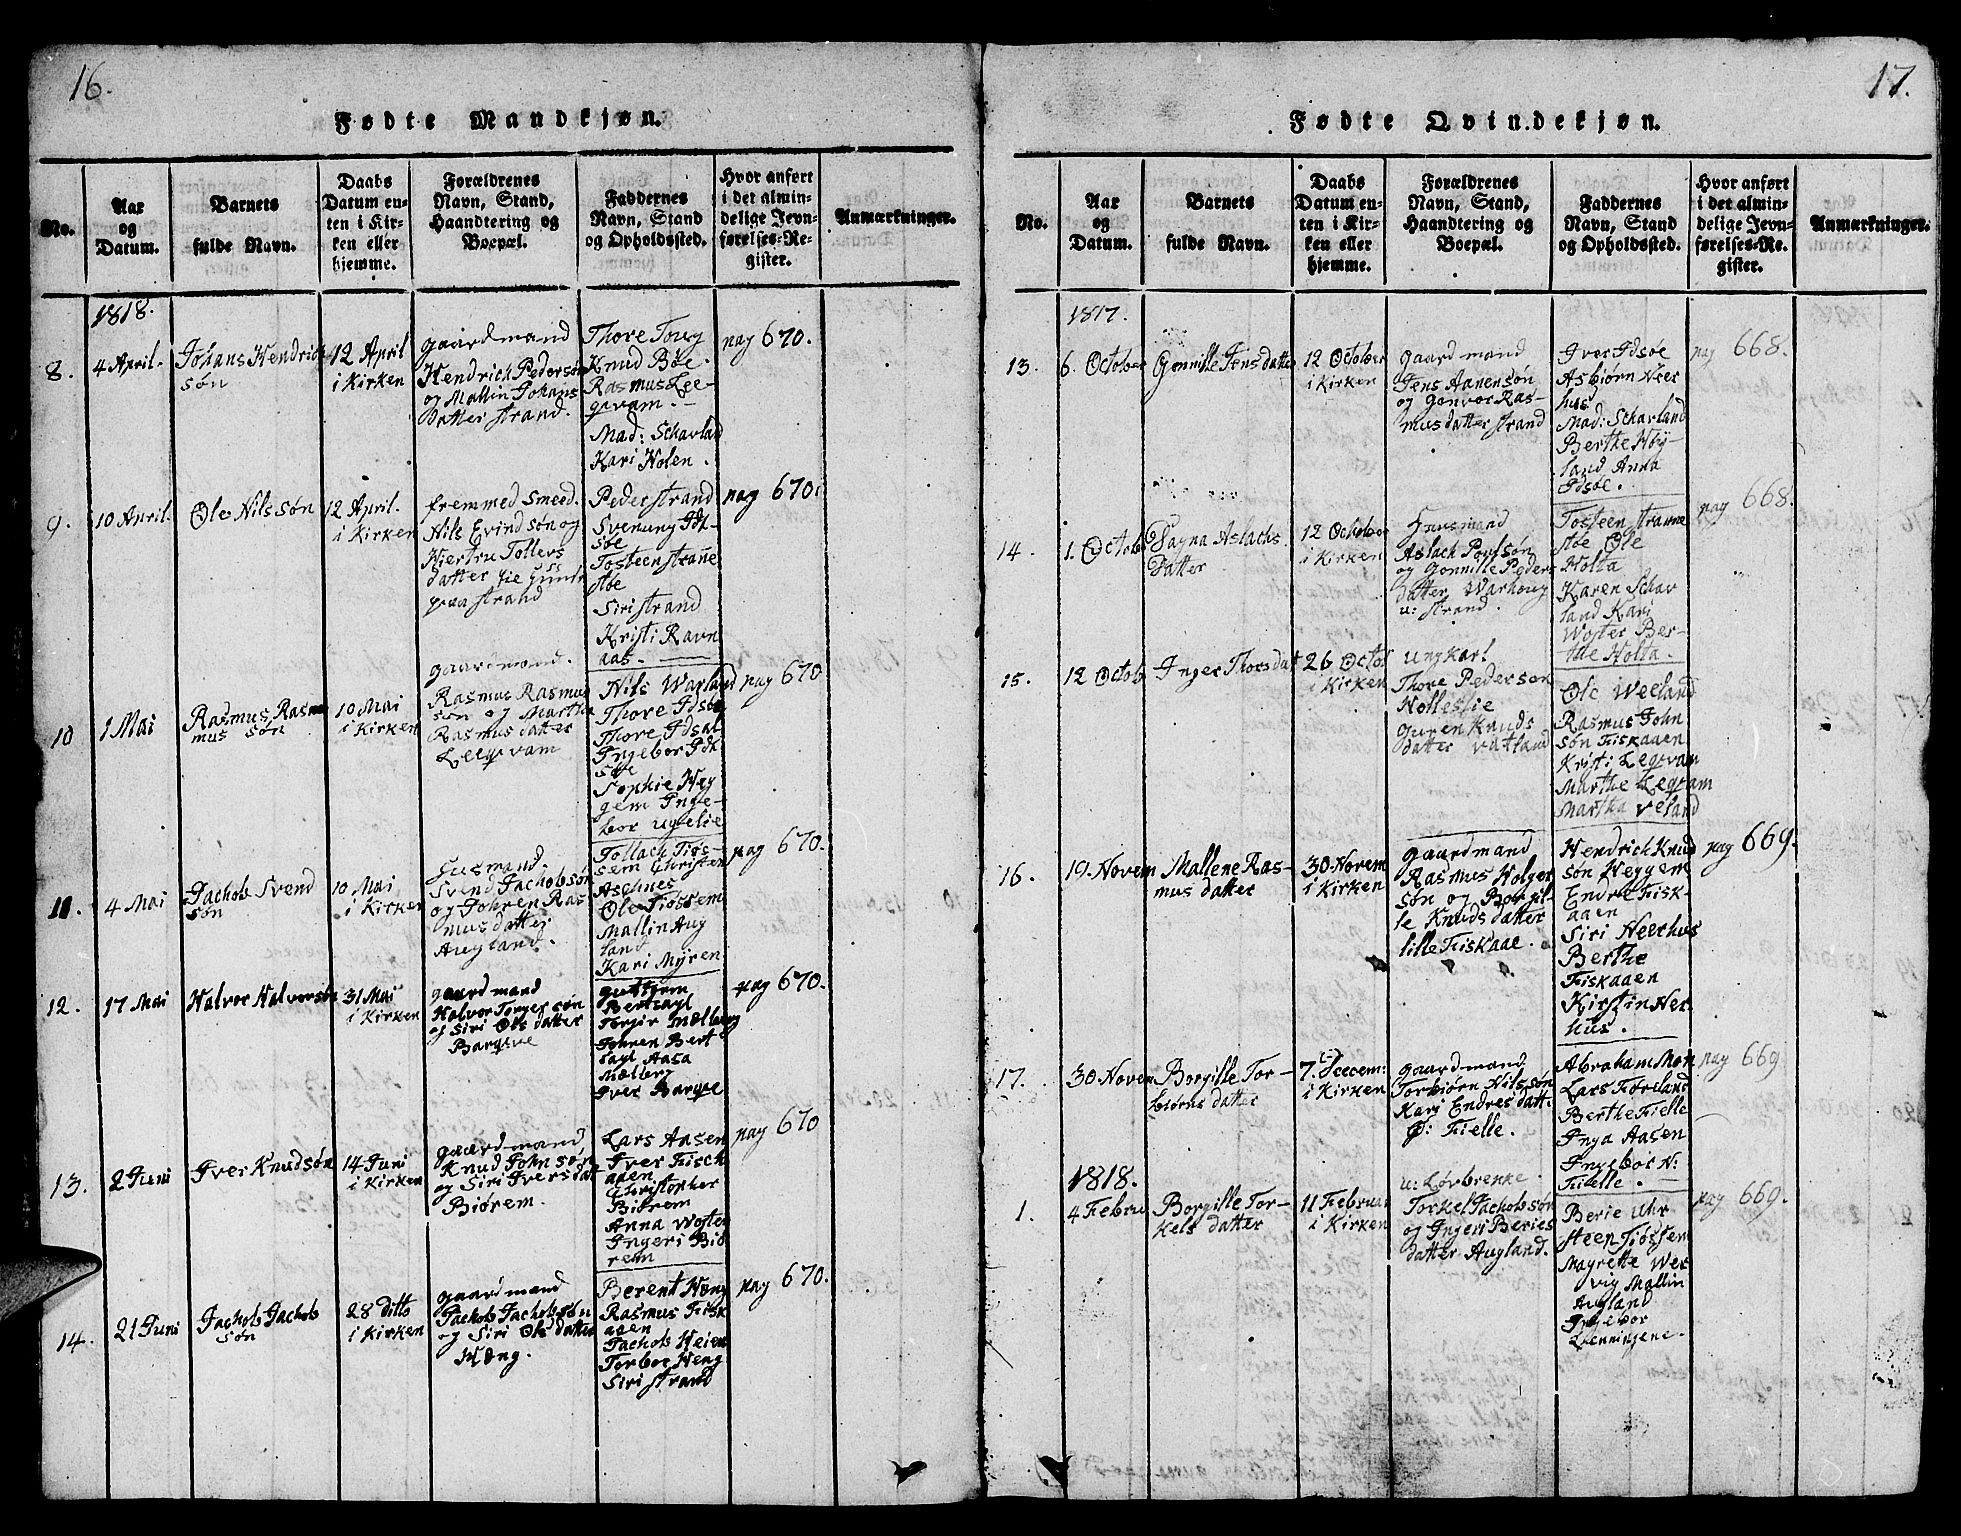 16.
Fødte Mandkjøn.
No.
Aar
og
Datum.
Barnets
fulde Navn.
Daabs
Datum en-
ten i Kir-
ken eller
hjemme.
Forældrenes
Navn, Stand,
Haandtering og
Boepæl.
Faddernes
Navn, Stand
og Opholdssted.
Hvor anført
i det almin-
delige Jevn-
førelses-Re-
gister.
Anmærkninger.
1818.
8.
4 April.
Johans Hendrick
søn
12 April
i Kirken
gaardmand
Hendrick Pedersøn
og Mallin Johans
Datter strand.
Thore Toug
Knud Bøe.
Rasmus Lee-
gvam.
Mad: Scharland
Kari Holen.
pag 670.
9.
10 April.
Ole Nils søn
12 April.
i Kirken
fremmed Smeed.
Nils Evind søn og
Kiertru Tollevs
datter
paa strand
Peder strand
Svenung Idt-
søe
Tosteen strane
støe
Siri strand
Kristi Ravn
aas.
pag 670.
10
1 Mai
Rasmus Rasm
mus søn
10 Mai
i Kirken
gaardmand.
Rasmus Rasmus
søn og Martha
Rasmus datter
Leeqvam
Nils Warland
Thore Idsøe
Thore Idsal
Ingebor Idt
søe
Sophie Heg
gem Inge-
bor ugelie
pag 670
11.
4 Mai
Jachob Svend
søn
10 Mai
i Kirken
Husmand.
Svend Jachobsøn
og Johren Ras
mus datter
Augland.
Tollach Tiøs-
sem Christen
Aschnes
Ole Tiøssem
Mallin Aug
land
Kari Myren
pag 670.
12.
17 Mai
Halvor Halvorsøn
31 Mai
i Kirken
gaardmand
Halvor Torgersøn
og Siri Ols datter
Barqve
guttorm
Bertsayl
Torgir Mælberg
Johren Bert
sayl Aasa
Mælberg
Iver Barqve
pag 670.
13.
2 Juni
Iver Knudsøn
14 Juni
i Kirken
gaardmand
Knud John søn
og Siri Iversdat
Biørem.
Lars Aasen
Iver Fisch
aaen
Christopher
Biørem
Anna Woster
Ingeri Biø
rem
pag 670
14.
21 Juni
Jachob Jachob
søn
28 ditto
i Kirken
gaardmand
Jachob Jachobsøn
og Siri Ols datter
Hæng.
Berent Hæng
Rasmus Fisk
aaen
Jachob Heien
Torbor Heng
Siri strand
pag 670.
17.
Fødte Qvindekjøn.
No.
Aar
og
Datum.
Barnets
fulde Navn.
Daabs
Datum en-
ten i Kir-
ken eller
hjemme.
Forældrenes
Navn, Stand,
Haandtering og
Boepæl.
Faddernes
Navn, Stand
og Opholdssted.
Hvor anført
i det almin-
delige Jevn-
førelses-Re-
gister.
Anmærkninger.
1817.
13.
6. October
Gonnille Jens datter
12 October
i Kirken
gaardmand
Jens Aanensøn
og Gonvor Ras-
mus datter strand
Iver Idsøe
Asbjørn Neer
hus
Mad: Scharland
Berthe Høy-
land Anna
Idsøe.
pag 668.
14.
1. Octob
Sagna Aslachs
Datter
12 October
i Kirken
Huusmand
Aslach Povlsøn
og Gonnille Peders
datter Warhoug
u: strand.
Tosteen Stranne
støe Ole
Holta
Karen Schar
land Kari
Woster Ber-
the Holta.
pag 668.
15.
12 Octob
Inger Thorsdat
26 Octob
i Kirken
ungkarl
Thore Pedersøn
Nolleslie
guren Knuds
datter vatland
Ole Weeland
Rasmus John
søn Fiskaaen
Kristi Leqvam
Marthe Leqvam
Martha veland
16.
19. Novem
Mallene Ras-
mus datter
30 Novem
i Kirken
gaardmand
Rasmus Holger
søn og Borgil-
le Knuds datter
lille Fiskaae.
Hendrick Knud
søn Heggem
Endre Fisk-
aaen
Siri Neerhus
Berthe
Fiskaaen
Kirstin Ner
hus.
pag 669.
17.
30 Novem
Borgille Tor-
biørns datter
7. Decem:
i Kirken
gaardmand
Torbiørn Nilssøn
Kari Endres datt
Ø: Fielle.
Abraham Moen
Lars Fiøreland
Berthe Fielle
Inga Aasen
Ingebor N:
Fielle.
pag 669
1818.
1.
4 Febru
Borgille Tor-
kels datter
11 Februar
i Kirken
u: Løvbrekke.
Torkel Jachobsøn
og Ingeri Beries
datter Augland.
Berie Uhr
steen Tiøssem
Magrette Wer
vig Mallin
Augland
Ingebor
Henningene.
pag 669.